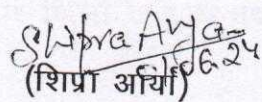 Shipra Arya
6.24
(शिप्रा अर्या)